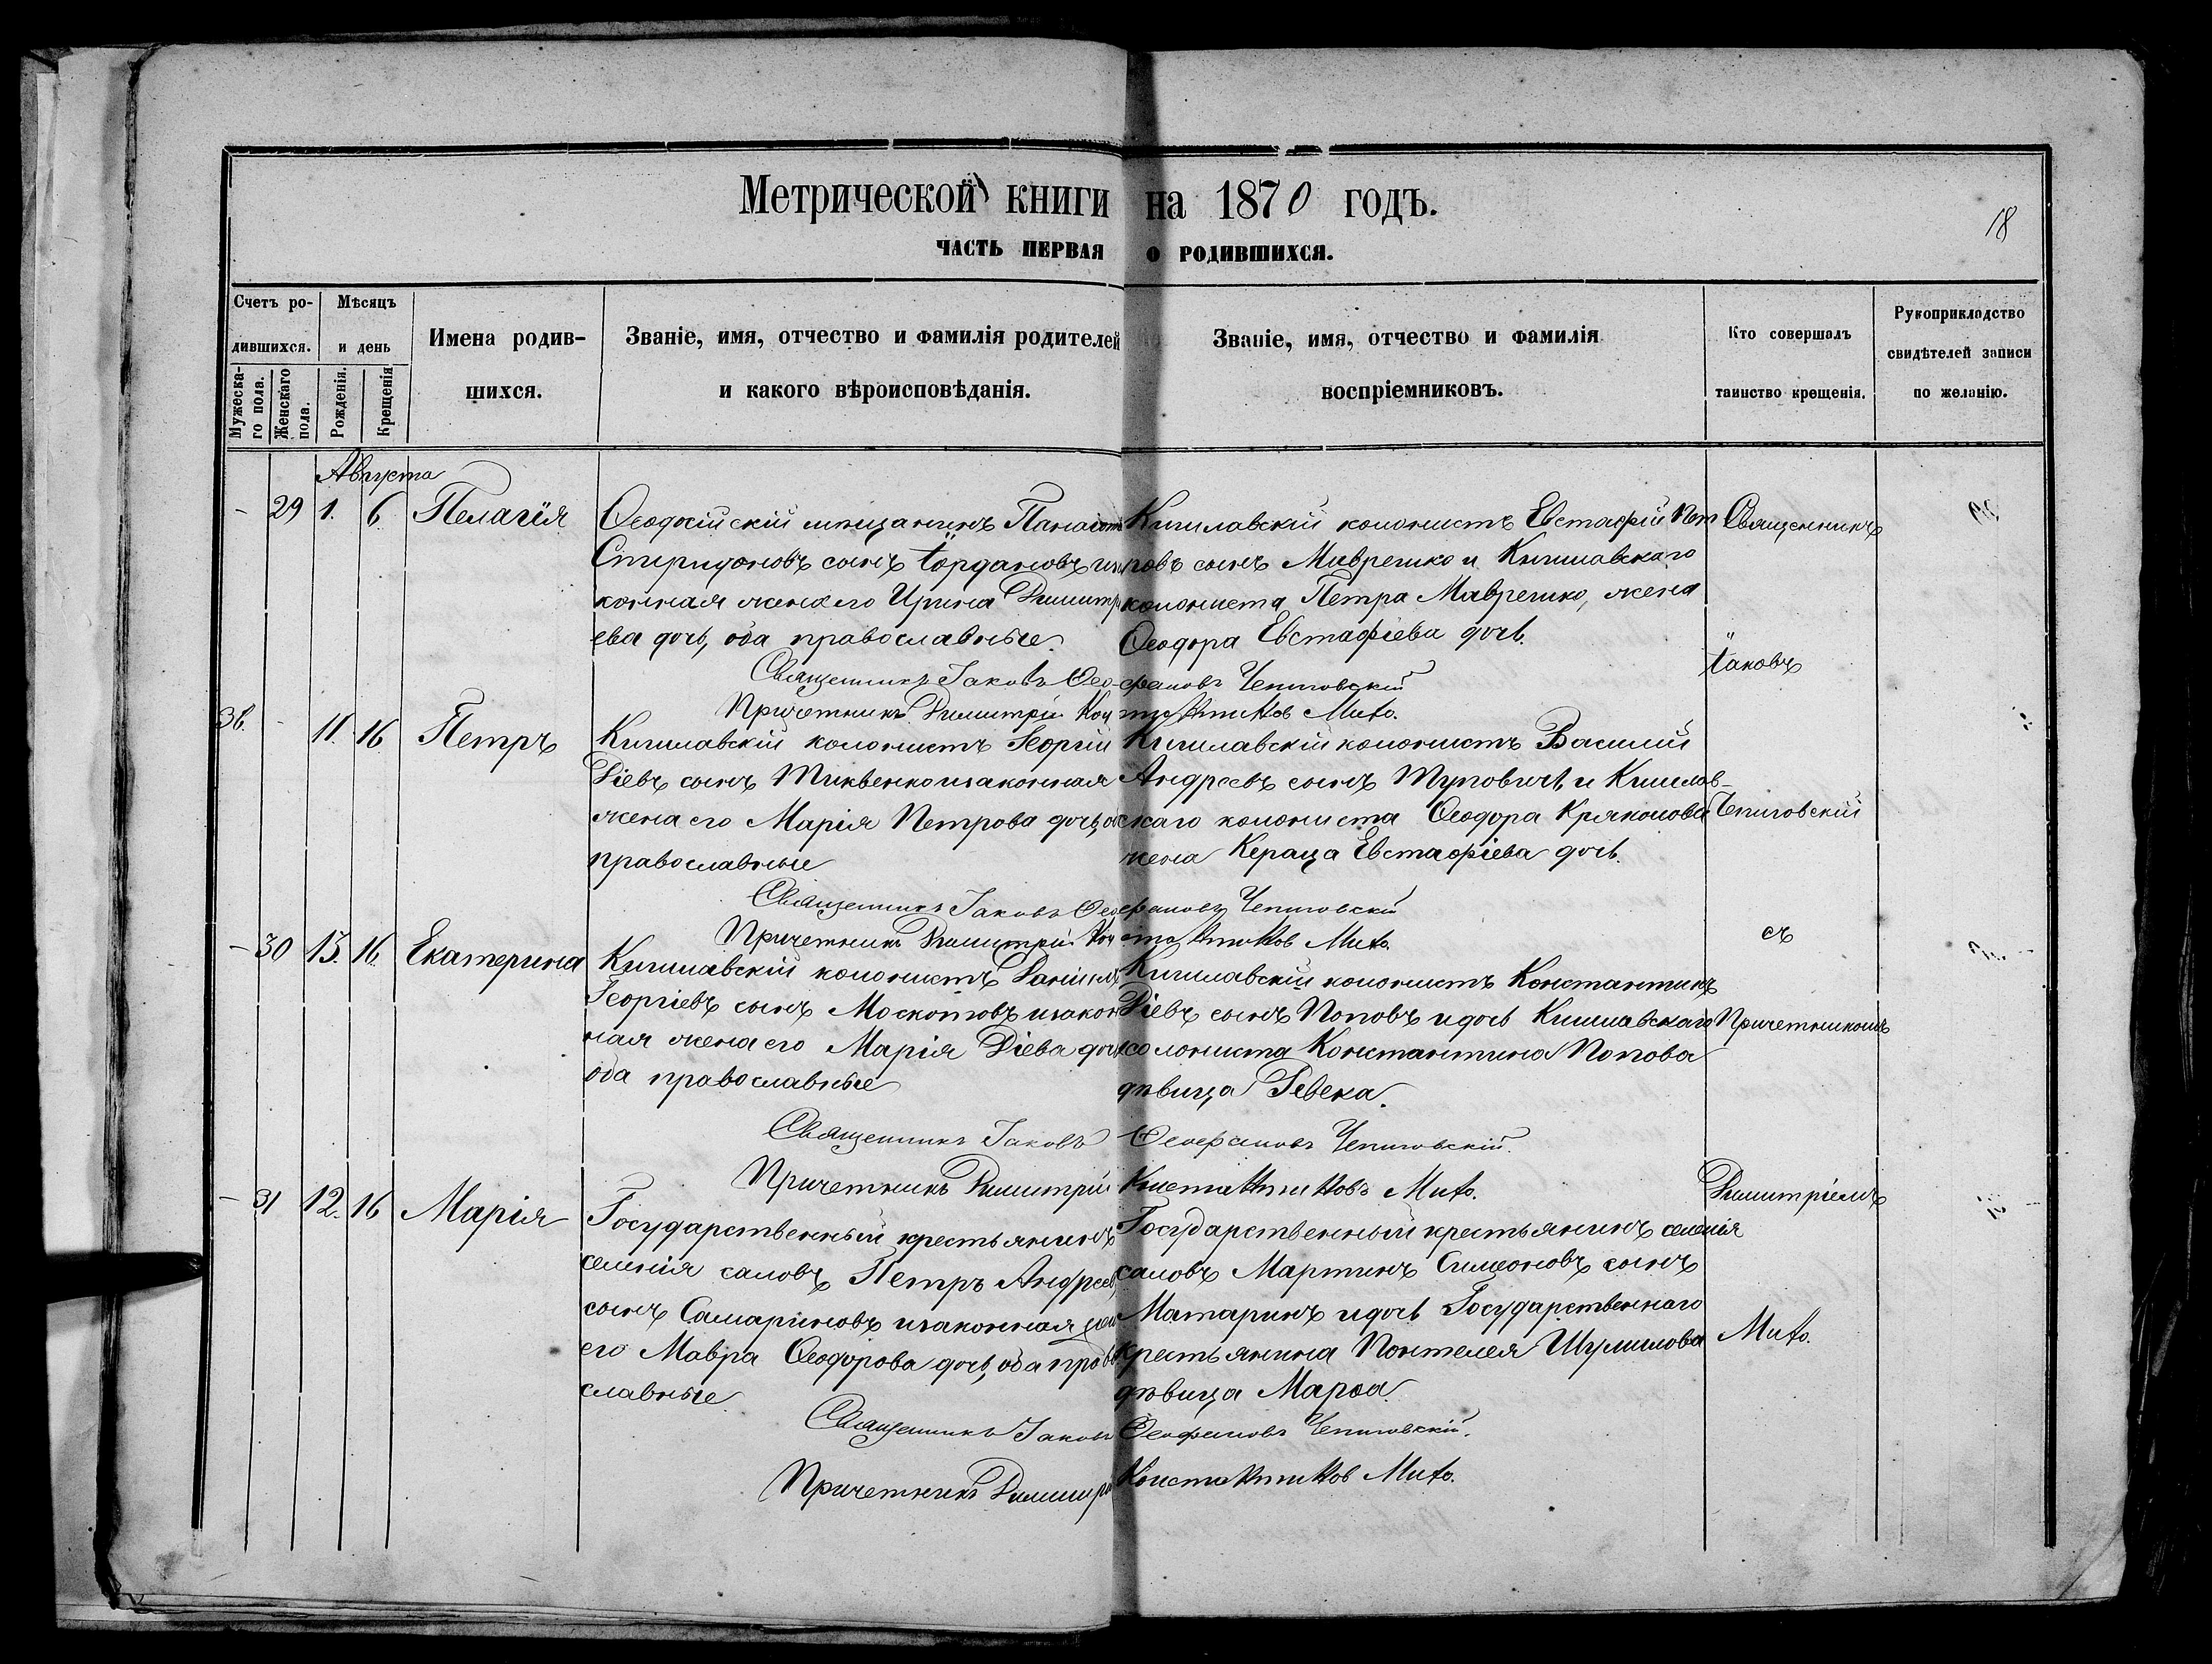 Метрической книги на 1870 годъ.
18
ЧАСТЬ ПЕРВАЯ О РОДИВШИХСЯ.
Счетъ ро-
дившихся.
Мужеска-
го пола.
Женскаго
пола.
Мѣсяцъ
и день
Рожденія.
Крещенія
Имена родив-
шихся.
Званіе, имя, отчество и фамилія родителей
и какого вѣроисповѣданія.
Званіе, имя, отчество и фамилія
воспріемниковъ.
Кто совершалъ
таинство крещенія.
Рукоприкладство
свидѣтелей записи
по желанію.
Августа
- 29 1. 6. Пелагія
Ѳеодосійскій мещанинъ
Спиридоновъ сынъ Іордановъ
конная жена его Ирина Димитрі
ева дочь, оба православные.
Кишлавскій колонистъ Евстафій Пет
ровъ сынъ Маврешко и Кишлавскаго
колониста Петра Маврешко, жена
Ѳеодора Евстафіева дочь.
Священникъ Іаковъ Ѳео-фановъ Чепиговскій
Причетникъ Димитрій Константиновъ Мито.
36. - 11. 16 Петръ
Кишлавскій колонистъ Георгій
Діевъ сынъ Тиквенко и законная
жена его Марія Петрова дочь, об
православные
Кишлавскій колонистъ Василій
Андреевъ сынъ Тутовичъ и Кишлав-
скаго колониста Ѳеодора Кряконова
жена Кераца Евстафіева дочь.
Священникъ Іаковъ Ѳеофановъ Чепиговскій
Причетникъ Димитрій Константиновъ Мито.
- 30 13. 16. Екатерина
Кишлавскій колонистъ Даніилъ
Георгіевъ сынъ Москоповъ и закон
ная жена его Марія Діева дочь
оба православные
Кишлавскій колонистъ Константинъ
Діевъ сынъ Поповъ и дочь Кишлавскаго
колониста Константина Попова
дѣвица Ревека.
Священникъ Іаковъ Ѳеофановъ Чепиговскій.
Причетникъ Димитрій Константиновъ Мито.
- 31 12. 16 Марія
Государственный крестьянинъ
селенія саловъ Петръ Андреевъ
сынъ Самариновъ и законная жена
его Мавра Ѳеодорова дочь, оба право
славные
Государственный крестьянинъ селенія
саловъ Мартинъ Симеоновъ сынъ
Матаринъ и дочь Государственнаго
крестьянина Понтелея Шулимова
дѣвица Марѳа
Священникъ Іаковъ Ѳеофановъ Чепиговскій.
Причетникъ Димитрій Константиновъ Мито.
Священникъ
Іаковъ
Чепиговскій
съ
Причетникомъ
Димитріемъ
Мито.